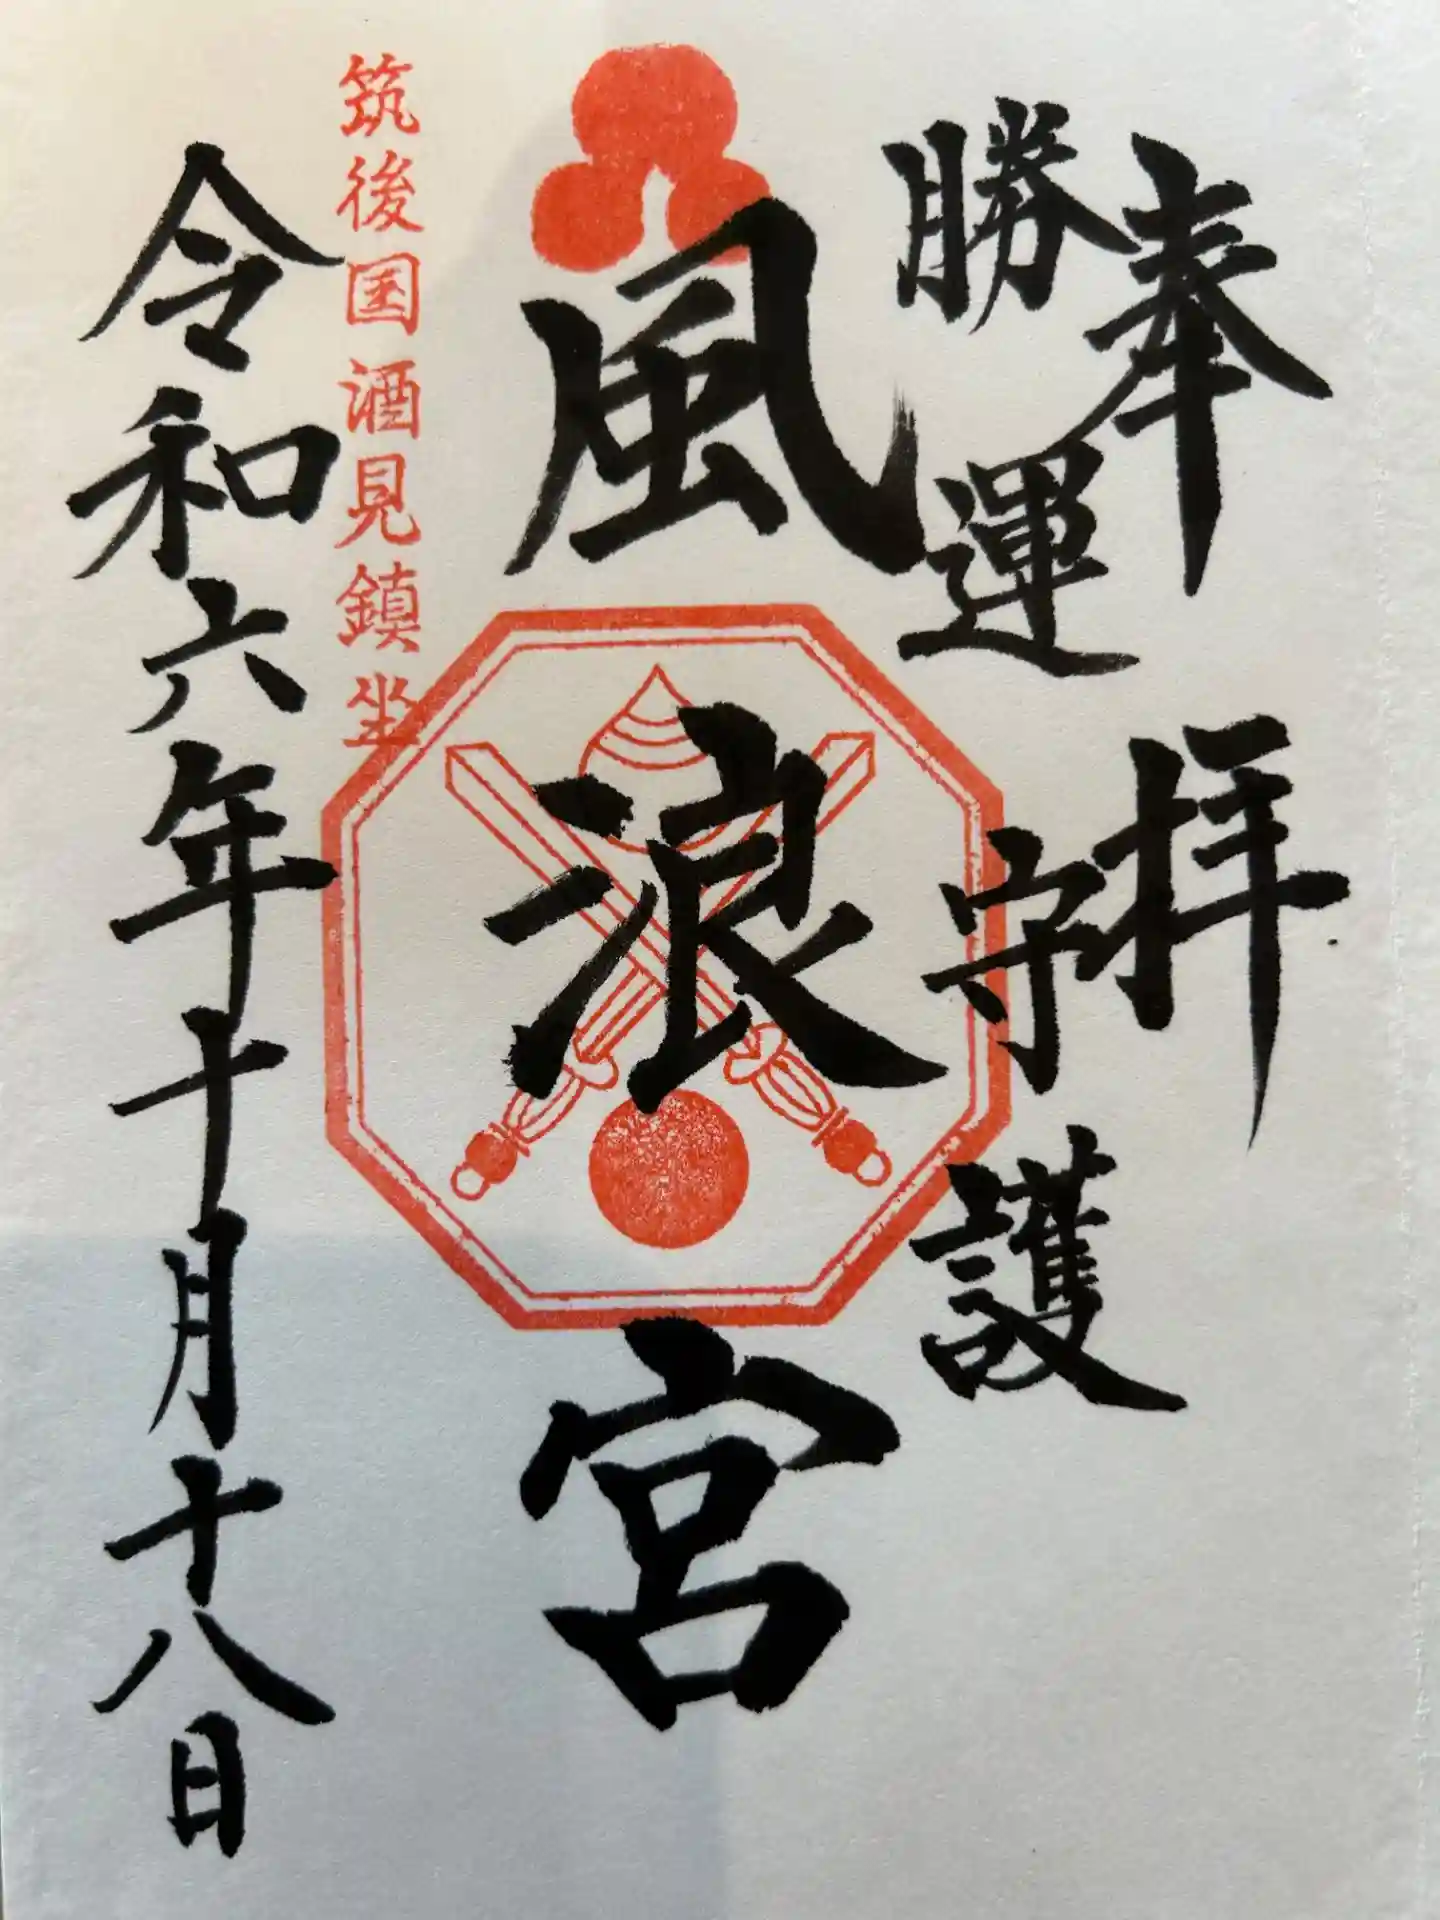 奉拝
勝運守護
風浪宮
筑後国酒見鎮坐
令和六年十月十八日